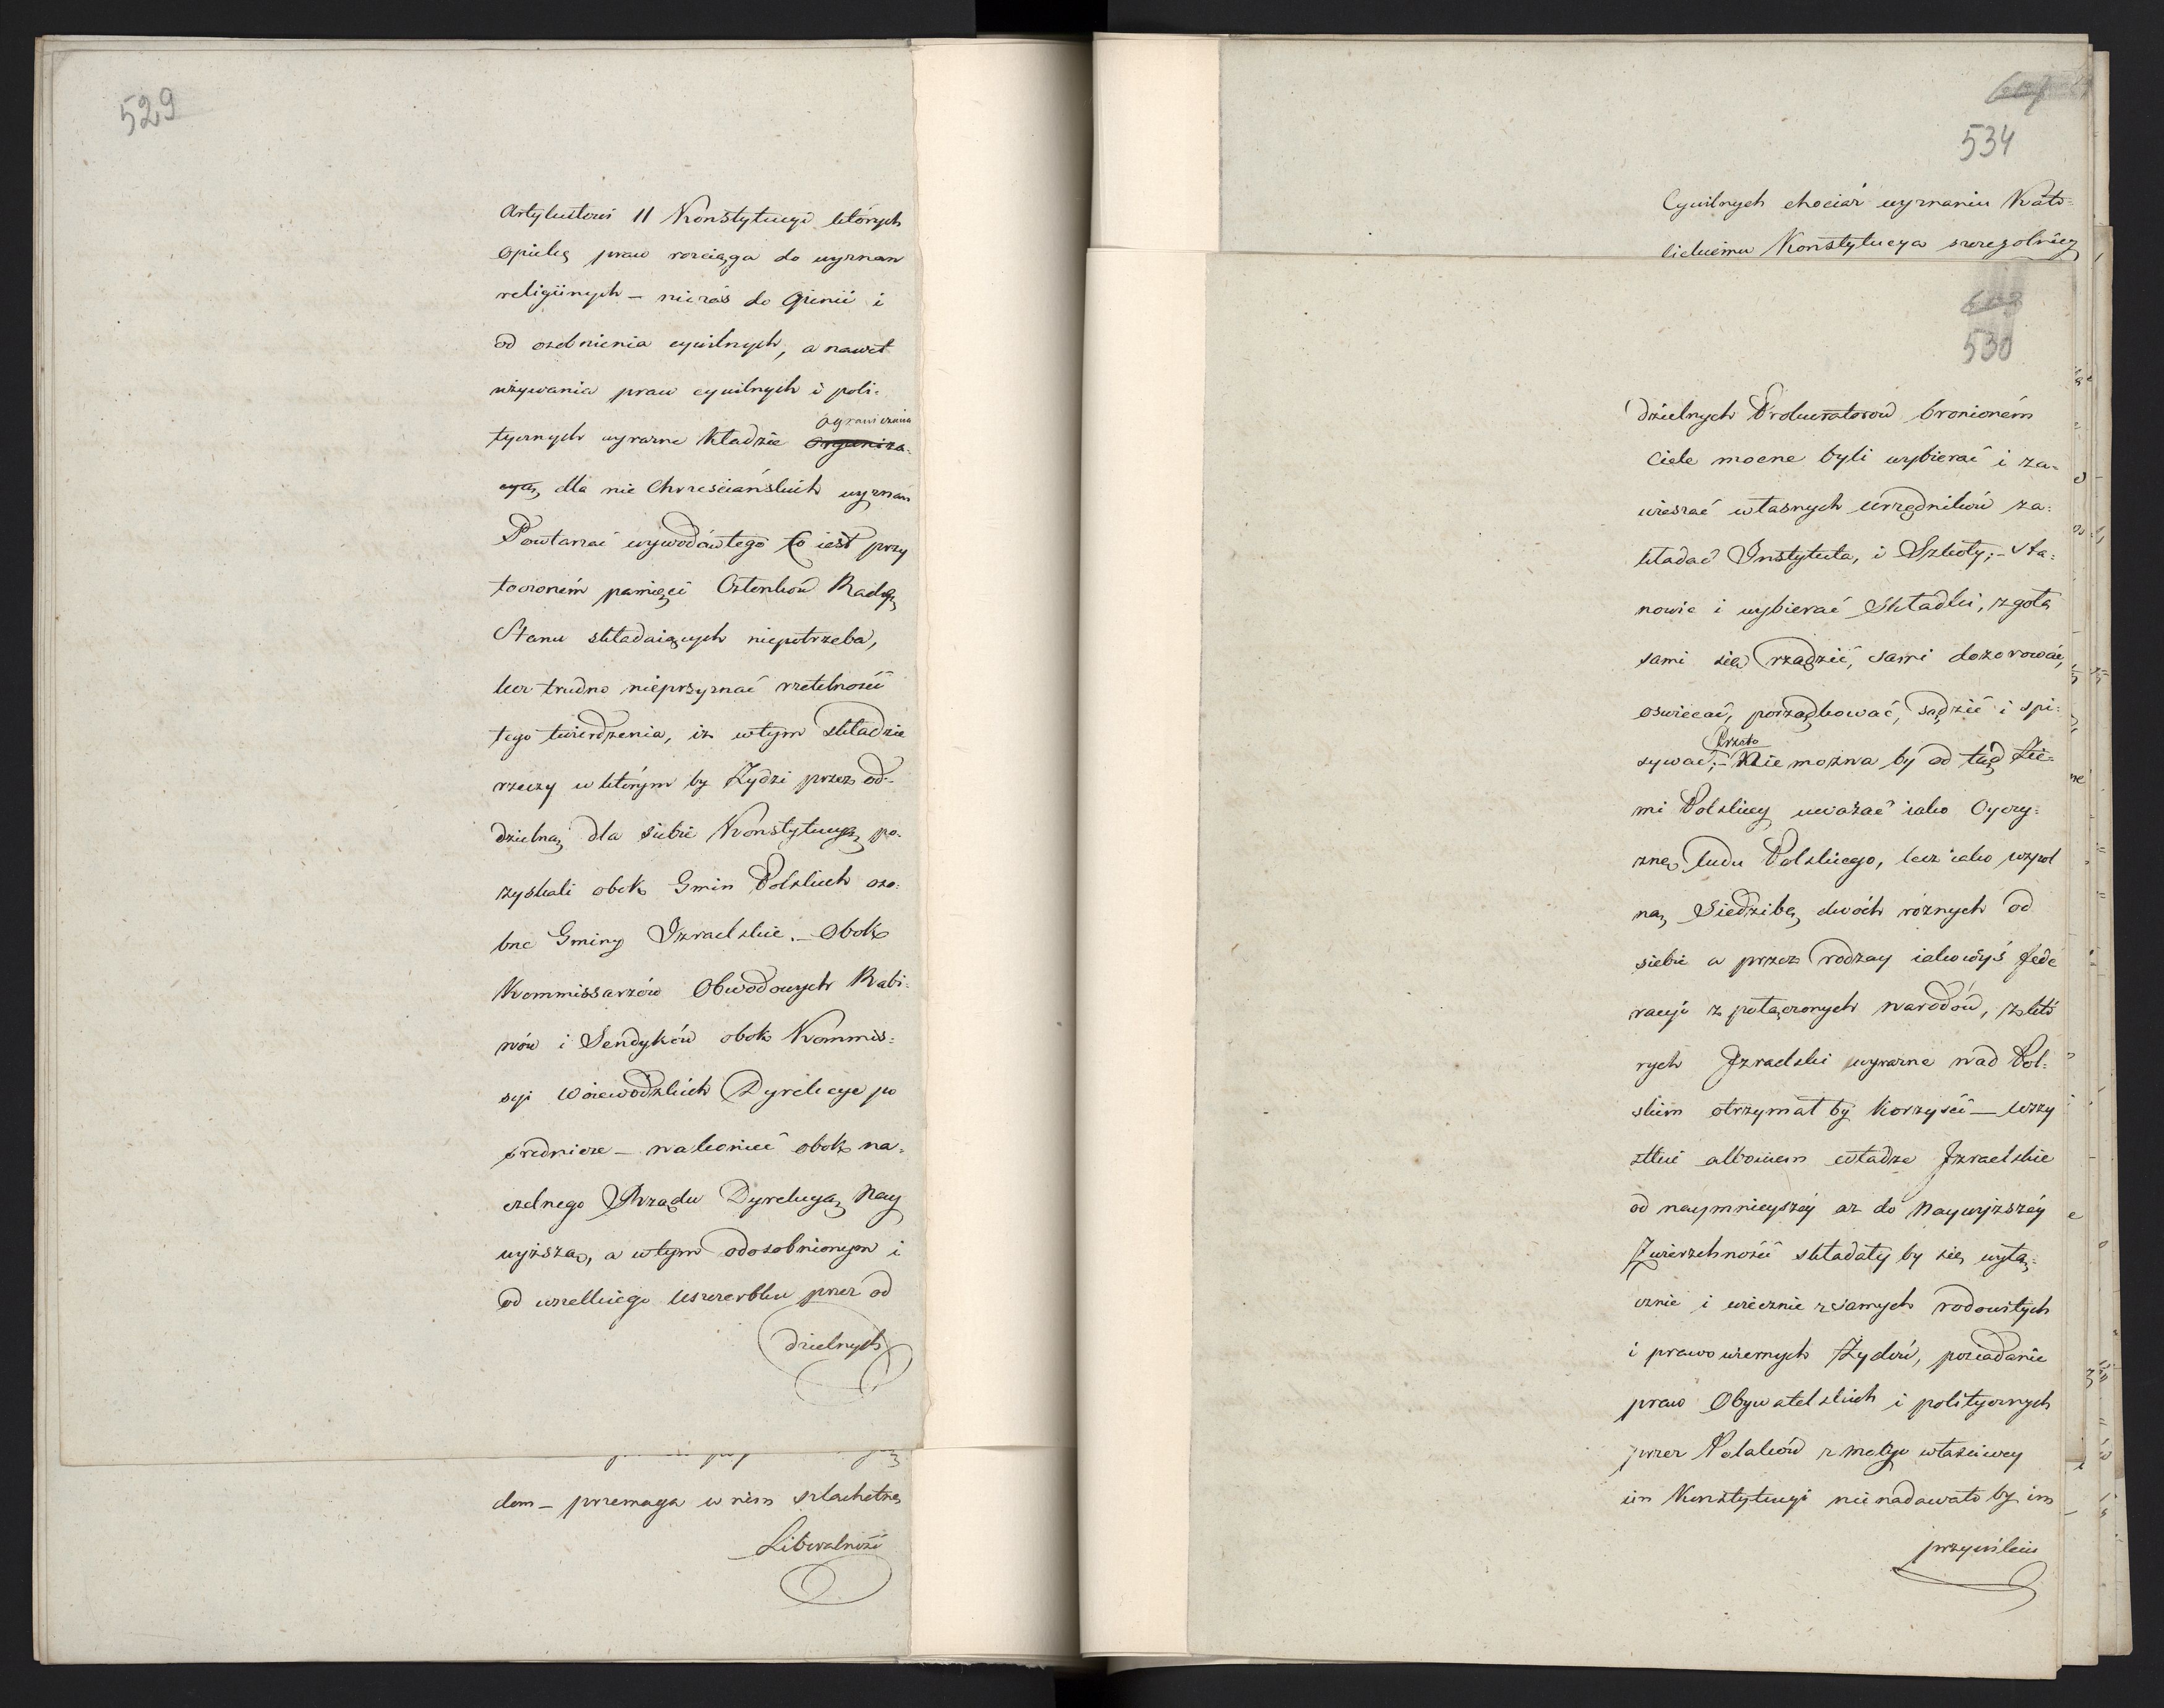 529
Artykułowi 11 Konstytucyi których
opiekę praw rościąga do wyznan
religiinych – nie zaś do Gminii i
od osobnienia cywilnych, a nawet
używania praw cywilnych i poli-
tycznych wyrazne kładzie organiza-
ograniczenia
cyą, dla nie Chrześciańskich wyznań
Powtarzać wywodów tego co iest przy
toczonem pamięci Członków Rady
Stanu składaiących niepotrzeba,
lecz trudno nieprzyznać rzetelności
tego twierdzenia, iż w tym składzie
rzeczy w którym by Żydzi przez od-
dzielną dla siebie Konstytucyą po-
zyskali obok Gmin Polskich oso-
bne Gminy Izraelskie. – Obok
Kommissarzów Obwodowych Rabi-
nów i Sendyków obok Kommis-
syi Woiewodzkich Dyrekcye po
srednicze – nakoniec obok na-
czelnego Rządu Dyrekcyą Nay
wyższą, a w tym odosobnionym i
od wszelkiego uszczerbku przez od
dzielnych
dom – przemaga w nim szlachetna
Liberalność
534
Cywilnych chociaż wyznaniu Kato-
lickiemu Konstytucya szczegolniey
530
dzielnych Prokuratorów bronioném
Ciele mocne byli wybierać i za-
wieszać własnych Urzędników za-
kładać Instytuta, i Szkoły; – Sta-
nowić i wybierać Składki, zgoła
sami się rządzić, sami dozorować,
oswiecać, porządkować, sądzić i spi-
Przeto
sywać; – Nie można by od tąd Zie-
mi Polskiey uważać iako Oyczy-
znę Ludu Polskiego, lecz iako wspol
ną Siedzibę dwóch roznych od
siebie a przez rodzay iakowyś Fede
racyi z połączonych narodów, z któ
rych Izraelski wyrazne nad Pol-
skim otrzymał by korzyści – wszy
stkie albowiem władze Izraelskie
od naymnieyszéy az do Naywyższéy
Zwierzchności składały by się wyłą-
cznie i wiecznie z samych rodowitych
i prawowiernych Żydów, posiadanie
praw Obywatelskich i politycznych
przez Polaków z mocy właściwey
im Konstytucyi nie nadawało by im
przywileiu